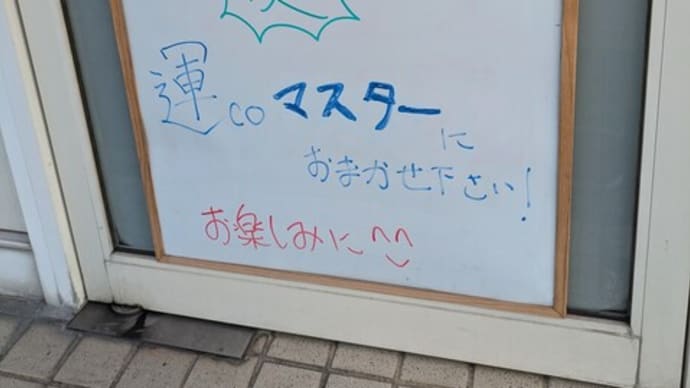 運coマスター
に
おまかせ下さい!
お楽しみに^^